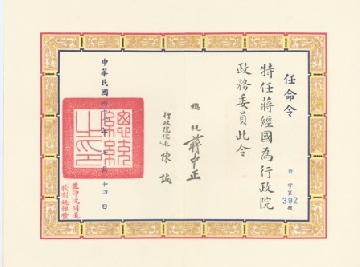 任命令
特任蔣經國為行政院
政務委員此令
總統 蔣中正
行政院院長 陳誠
中華民國
日
總統之印
特字第
392
號